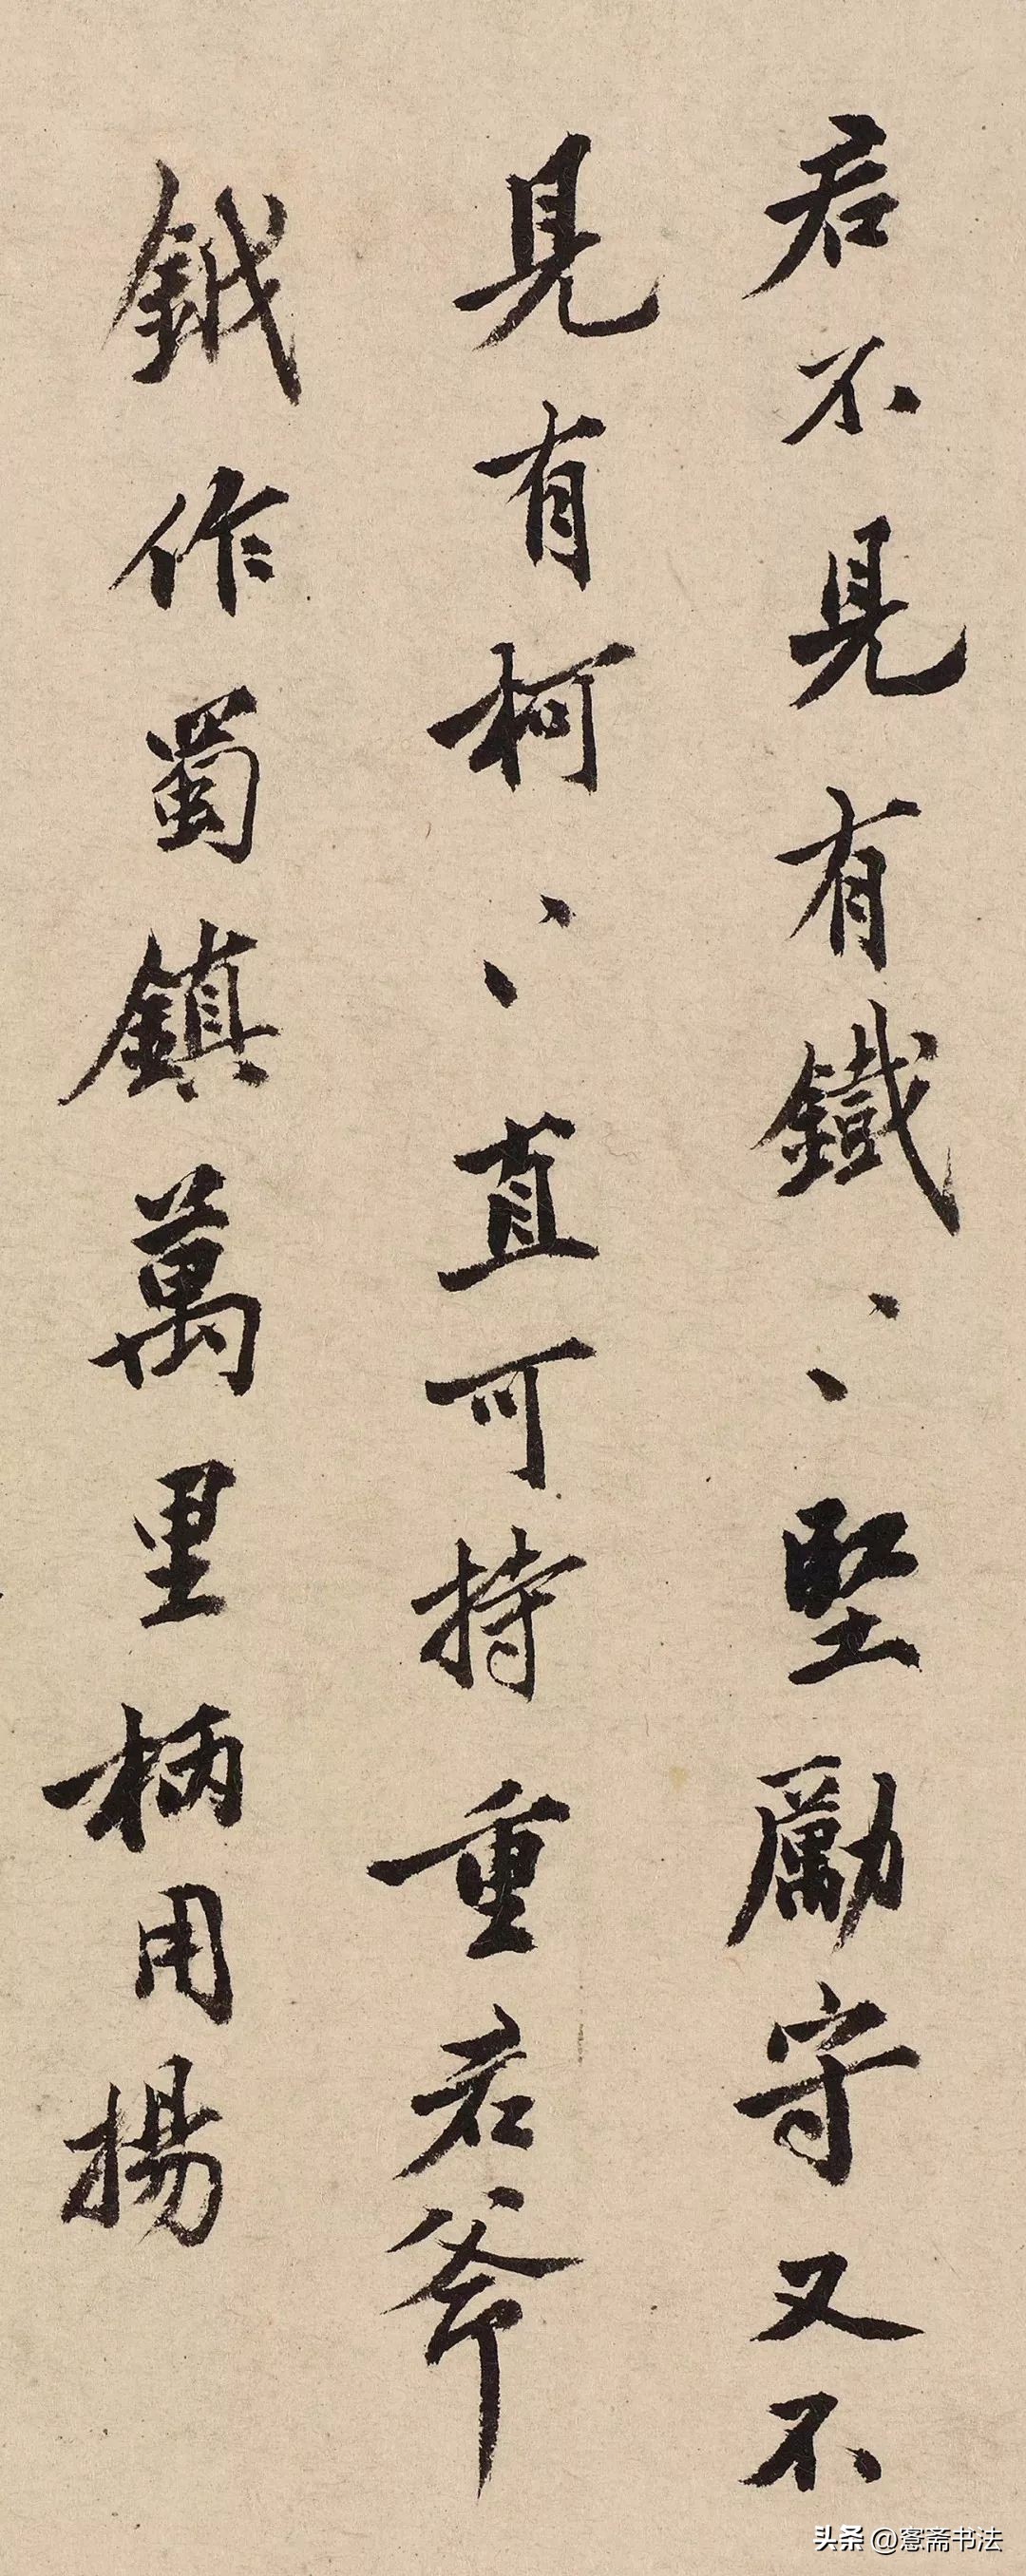 君不見有鐵〻堅勵守又不
見有柯〻直可持重君斧
鉞作蜀鎮萬里柄用揚
头条 @窓斋书法